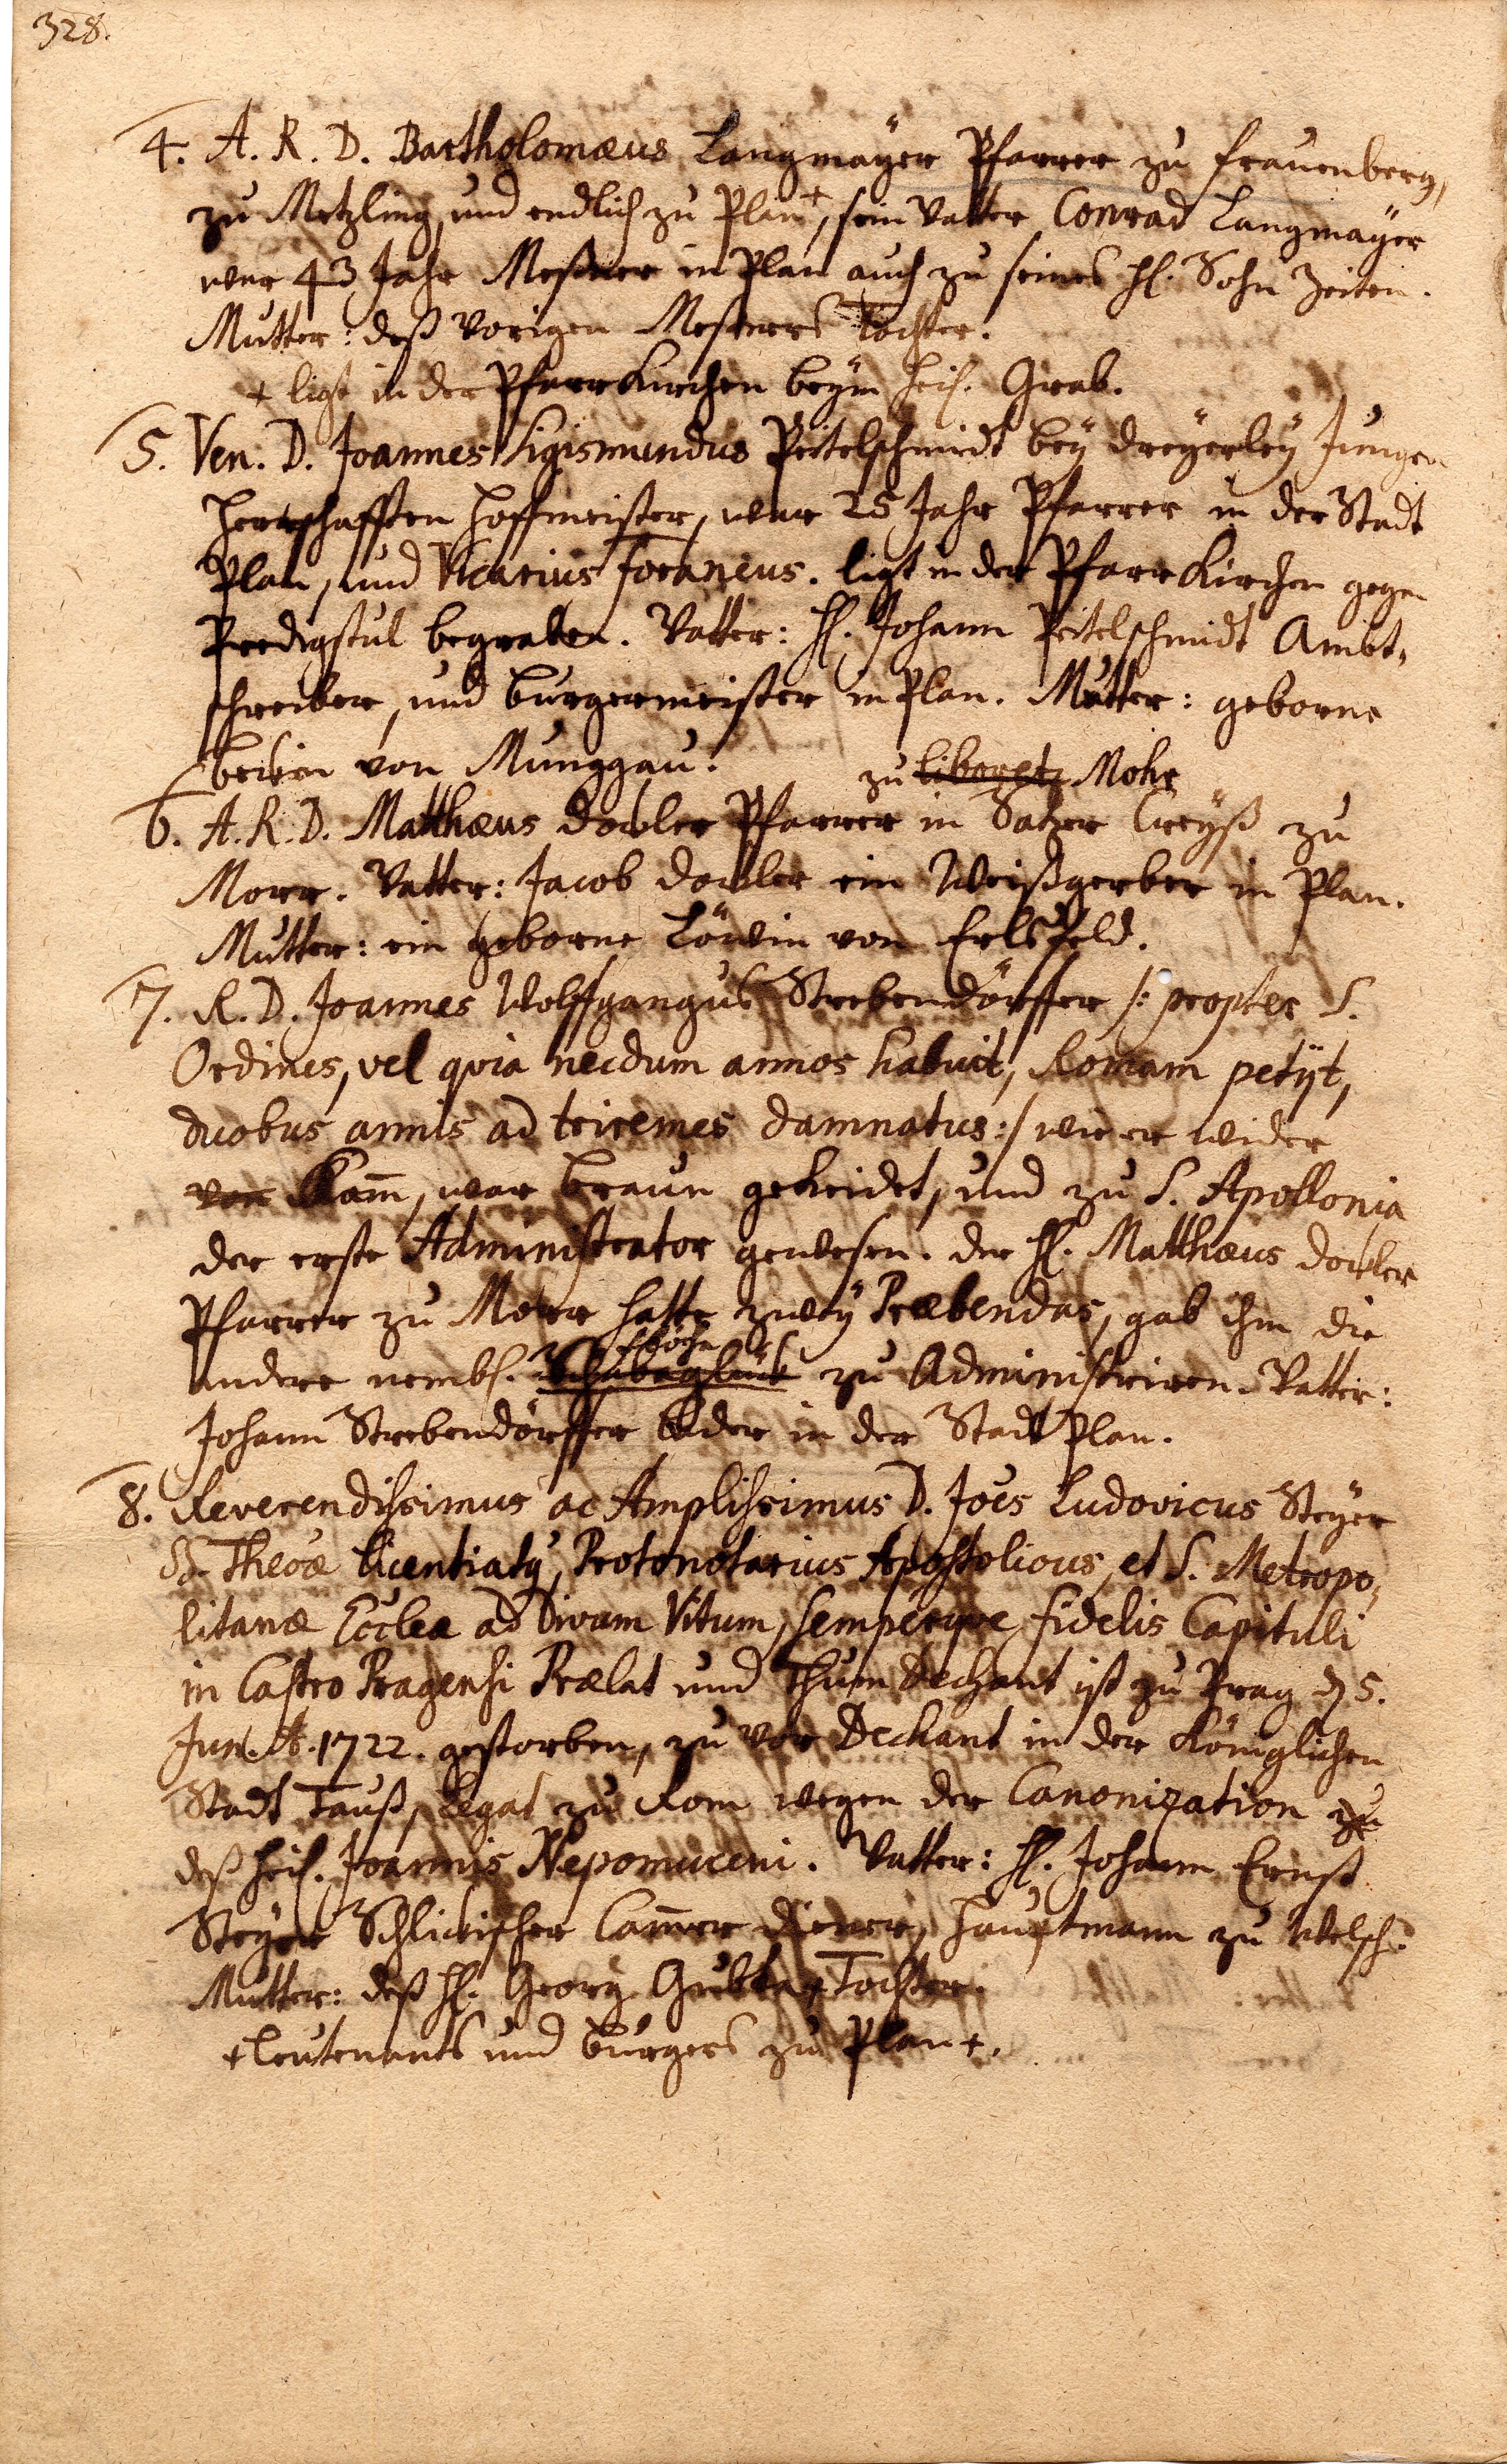 328.
4. A. R. D. Bartholomæus Langmaÿer Pfarrer zu Frauenberg,
zu Metzling, und endlich zu Plan +, sein Vatter Conrad Langmaÿer
war 43 Jahr Meßner in Plan auch zu seines H. Sohn Zeiten.
Mutter: deß vorigen Meßners Tochter.
+ ligt in der Pfarr Kirchen beÿm heil. Grab.
5. Ven. D. Joannes Sigismundus Peitelschmidt beÿ dreÿerleÿ Jungen
Herrschafften Hoffmeister, war 25 Jahr Pfarrer in der Stadt
Plan, und Vicarius foraneus. ligt in der Pfarr Kirchen gegen
Predigstul begraben. Vatter: H. Johann Peitelschmidt Ambt,
schreiber, und burgermeister in Plan. Mutter: geborne
von Munggau.
zu Liboretz Mohr
6. A. R. D. Matthæus Dobler Pfarrer in Satzer Creÿß zu
Morr. Vatter: Jacob Dobler ein Weißgerber in Plan.
Mutter: ein geborne Löwin von Erlsfeld.
7. R. D. Joannes Wolffgangus Strebendörffer /: propter S.
Ordines, vel quia necdum annos habuit, Romam petÿt,
duobus annis ad triremes damnatus :/ wie er wider
von Kam̄, war braun gekleidet, und zu S. Apollonia
der erste Administrator gewesen. der H. Matthæus Dobler
Pfarrer zu Morr hatte zweÿ Præbendas, gab ihm die
andere nembl. zu Administriren. Vatter:
Johann Strebendörffer bader in der Stadt Plan.
8. Reverendissimus ac Amplissimus D. Joes Ludovicus Steÿer
SS. Theoæ licentiatq, Protonotarius Apostolicus, et S. Metropo,
litanæ Eccleæ ad Divum Vitum, semperque fidelis Capituli
in Castro Pragensi Prælat und Thum Dechant ist zu Prag d 5.
Jun. A. 1722. gestorben, zu vor Dechant in der Königlichen
Stadt Tauß, Legat zu Rom wegen der Canonization zu
deß heil. Joannis Nepomuceni. Vatter: H. Johann Ernst
Steÿer Schlickischer Cam̄er Diener, Hauptmann zu Welsch.
Mutter: deß H. Georg + Tochter.
+ Leutenants und burgers zu Plan +.